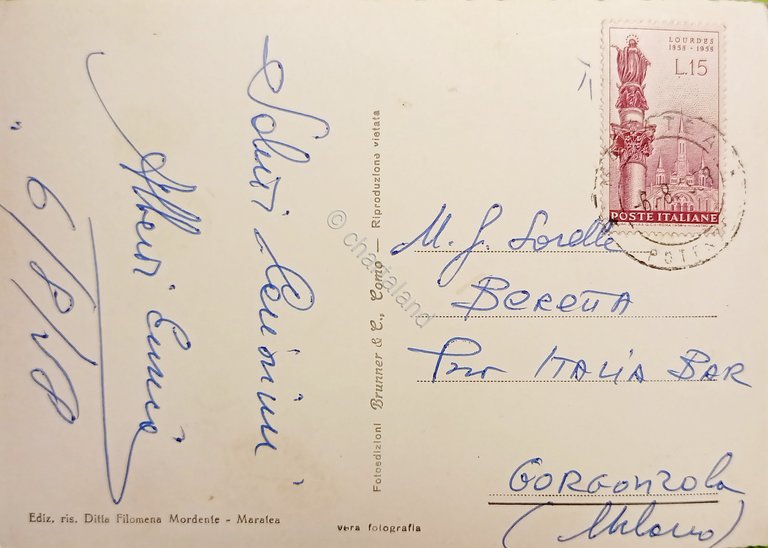 Saluti
Alberti Enrico
6/8/58
LOURDES
1858 - 1958
L.15
POSTE ITALIANE
MARATEA
6-8-58
POTENZA
M. G. Sorelle
BERETTA
ITALIA BAR
GORGONZOLA
(Milano)
Fotoedizioni Brunner & C., Como — Riproduzione vietata
© chartaland
Ediz. ris. Ditta Filomena Mordente - Maratea
vera fotografia